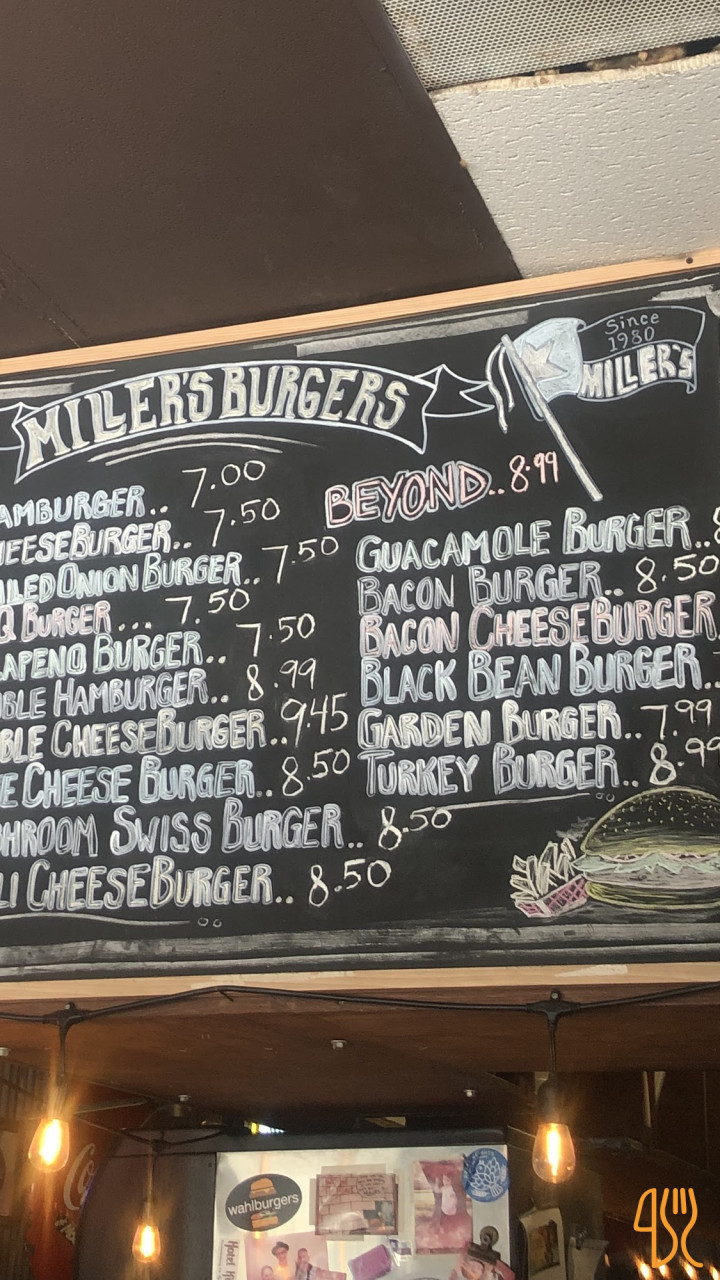 Since
1980
MILLER'S
MILLER'S BURGERS
AMBURGER.. 7.00
HEESEBURGER.. 7.50
LLED ONION BURGER.. 7.50
Q BURGER... 7.50
LAPENO BURGER.. 7.50
BLE HAMBURGER.. 8.99
BLE CHEESEBURGER.. 9.45
E CHEESE BURGER.. 8.50
HROOM SWISS BURGER.. 8.50
LI CHEESEBURGER.. 8.50
BEYOND.. 8.99
GUACAMOLE BURGER..
BACON BURGER.. 8.50
BACON CHEESEBURGER
BLACK BEAN BURGER..
GARDEN BURGER.. 7.99
TURKEY BURGER.. 8.99
wahlburgers